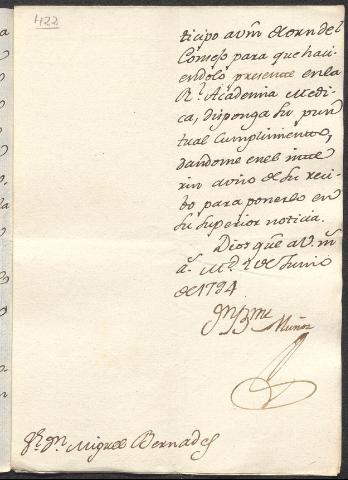 422
ticipo a vm. de orn del
Consejo para que haci-
endolo presente en la
Rl. Academia Medi-
ca, disponga su pun
tual cumplimiento,
dandome en el inte
rin aviso de su reci-
bo para ponerlo en
su superior noticia.
Dios gue. a V. m
as. Md. de Junio
de 1794
Muñoz
Sr. Dn. Miguel Bernades